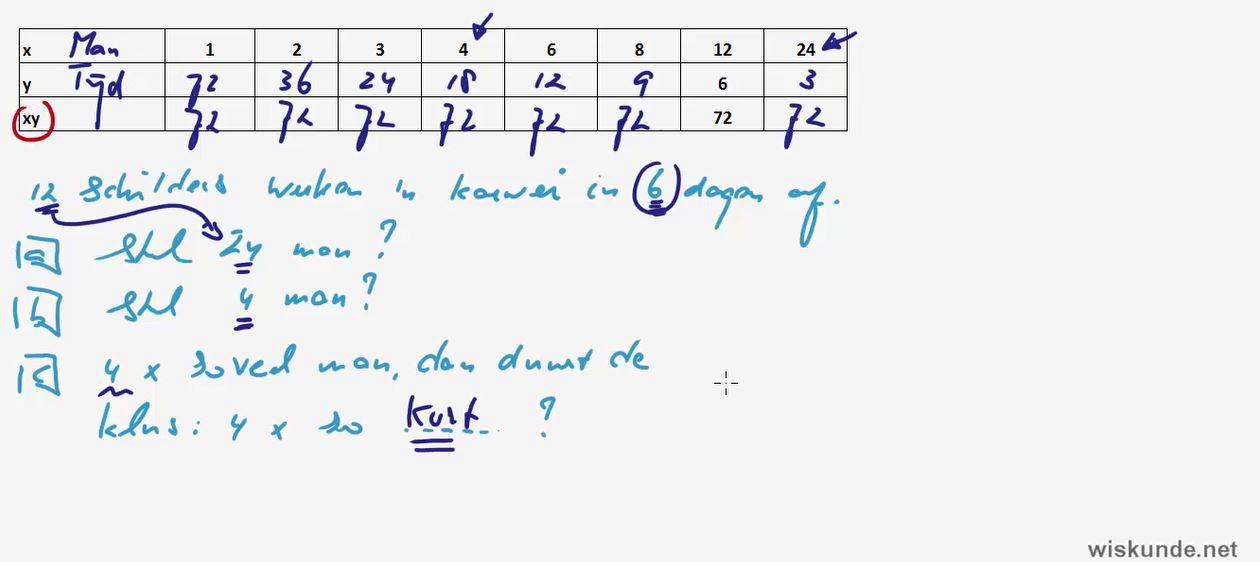 x Man 1 2 3 4 6 8 12 24
y Tijd 72 36 24 18 12 9 6 3
xy 72 72 72 72 72 72 72 72
12 schilders werken 'n karwei in 6 dagen af.
a stel 24 man?
b stel 4 man?
c 4 x zoveel man, dan duurt de
klus: 4 x zo kort ?
wiskunde.net